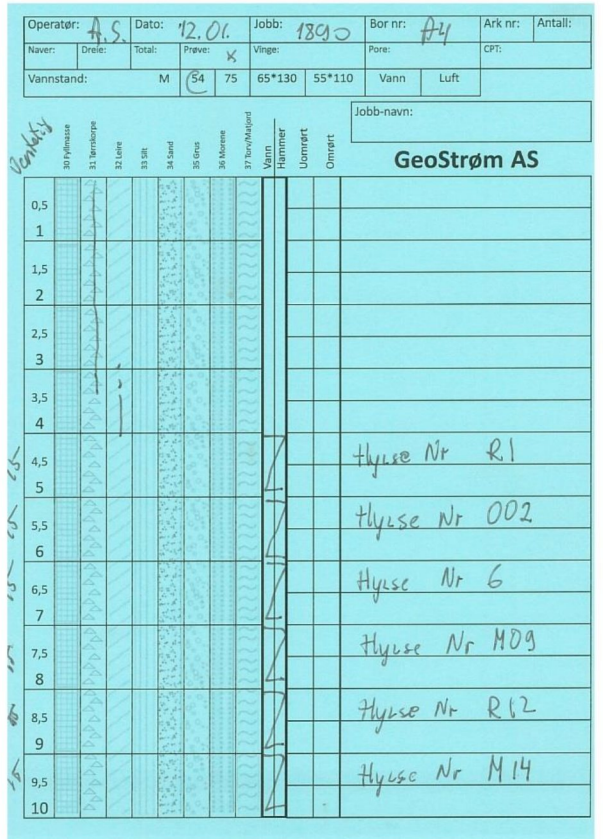 Operatør: A.S. Dato: 12.01. Jobb: 1890 Bor nr: A4 Ark nr: Antall:
Naver: Dreie: Total: Prøve: x Vinge: Pore: CPT:
Vannstand: M 54 75 65*130 55*110 Vann Luft
Jobb-navn:
GeoStrøm AS
30 Fyllmasse
31 Tørrskorpe
32 Leire
33 Silt
34 Sand
35 Grus
36 Morene
37 Torv/Matjord
Vann
Hammer
Uomrørt
Omrørt
0,5
1
1,5
2
2,5
3
3,5
4
4,5 Hylse Nr R1
5
5,5 Hylse Nr 002
6
6,5 Hylse Nr 6
7
7,5 Hylse Nr M09
8
8,5 Hylse Nr R12
9
9,5 Hylse Nr M14
10